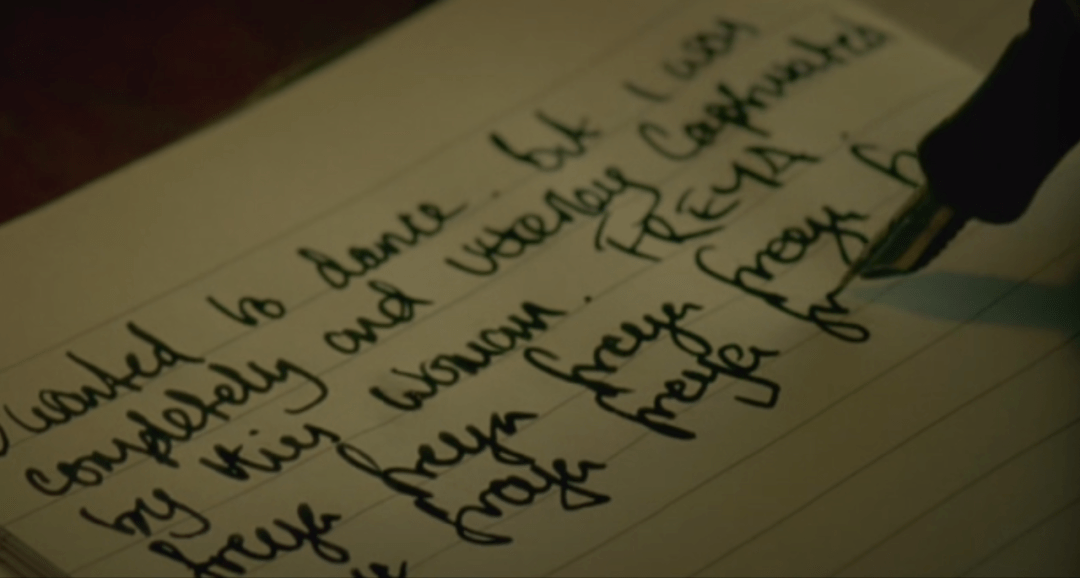 wanted to dance. but I was
completely and utterly captivated
by this woman. FREYA
freya freya freya freeya
fraya freya fr